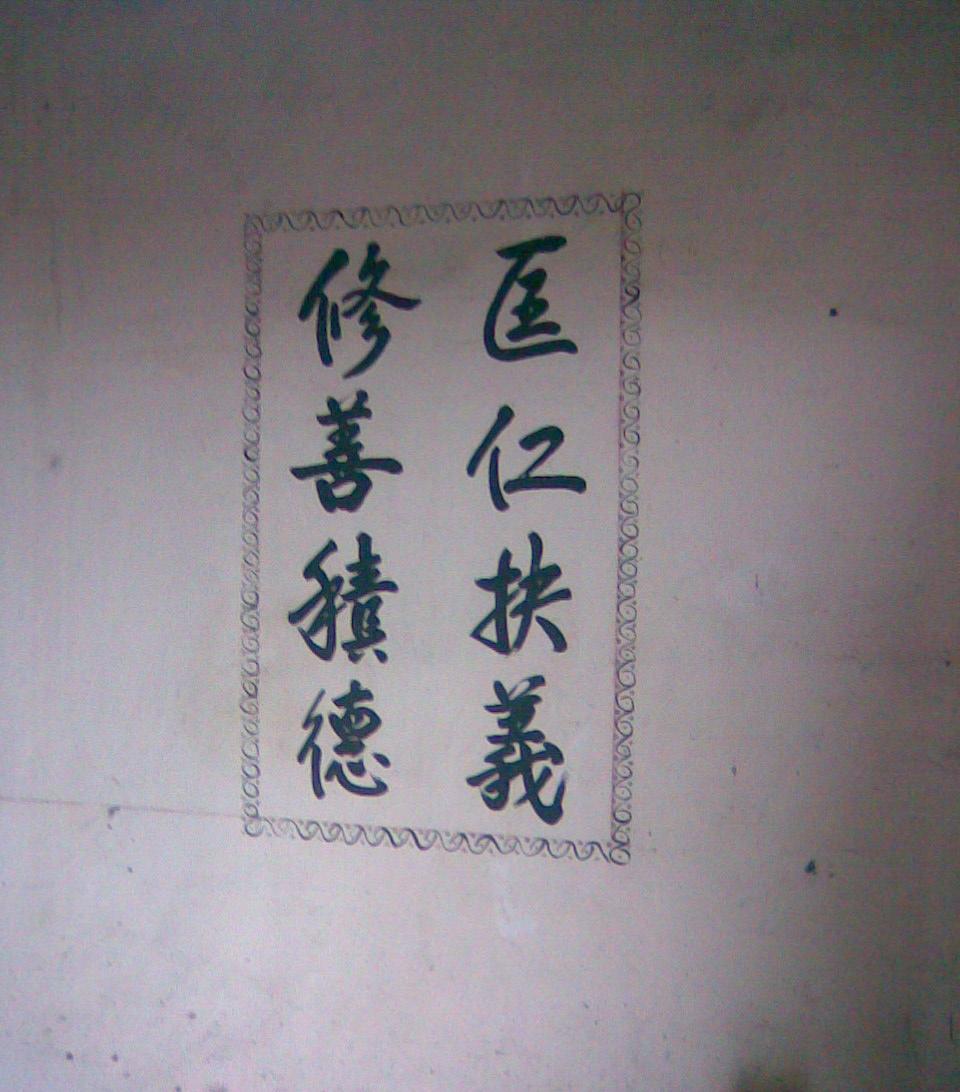 匡仁扶義
修善積德